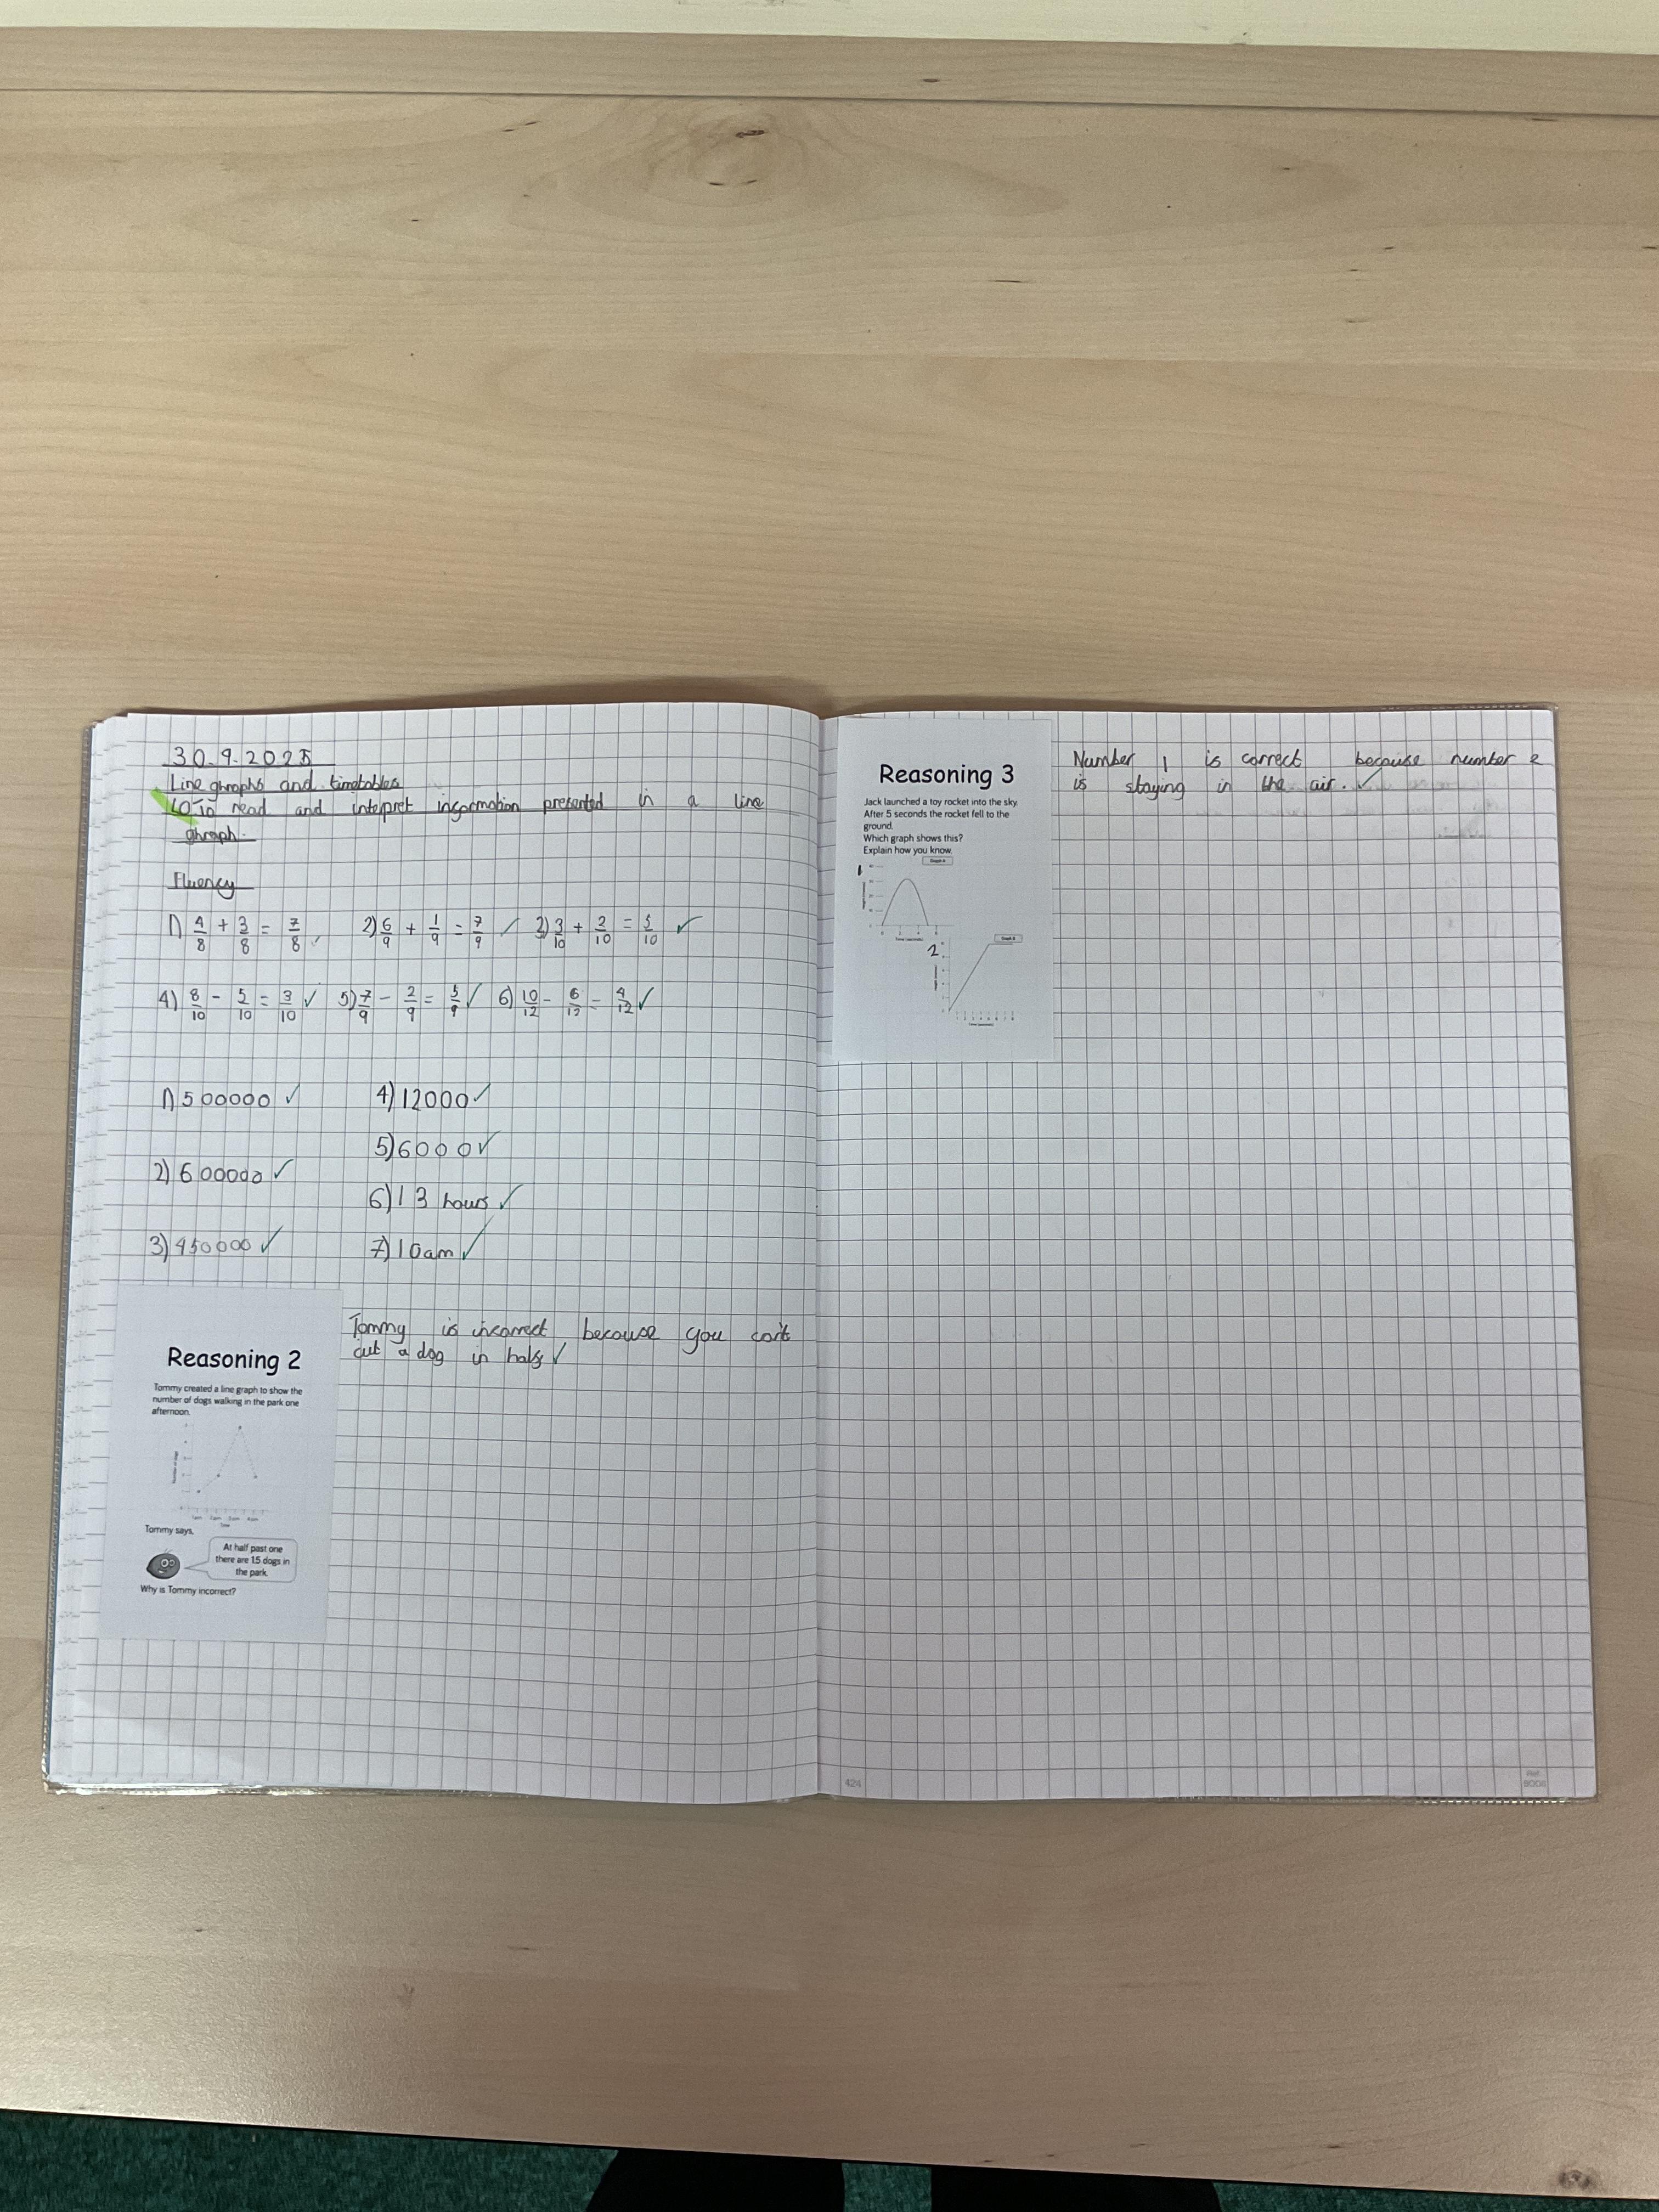 30.9.2025
Line ghraphs and timetables
LO:To read and interpret information presented in a line
ghraph.
Fluency
1) 4/8 + 3/8 = 7/8 2) 6/9 + 1/9 = 7/9 3) 3/10 + 2/10 = 5/10
4) 8/10 - 5/10 = 3/10 5) 7/9 - 2/9 = 5/9 6) 10/12 - 6/12 = 4/12
1) 500000
2) 600000
3) 450000
4) 12000
5) 6000
6) 13 hours
7) 10am
Reasoning 2
Tommy created a line graph to show the
number of dogs walking in the park one
afternoon.
Number of dogs
1pm 2pm 3pm 4pm
Time
Tommy says,
At half past one
there are 1.5 dogs in
the park.
Why is Tommy incorrect?
Tommy is incorrect because you can't
cut a dog in half
Reasoning 3
Jack launched a toy rocket into the sky.
After 5 seconds the rocket fell to the
ground.
Which graph shows this?
Explain how you know.
Graph A
1
0 2 4 6
Time (seconds)
Graph B
2
1 2 3 4 5 6 7 8
Time (seconds)
Number 1 is correct because number 2
is staying in the air.
424